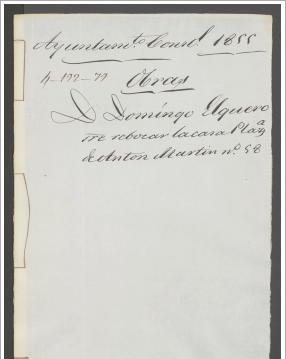 Ayuntamto. Consl. 1855
4-192-79
Obras
D. Domingo Elguero
sre. rebocar la casa Plaza
de Anton Martin no. 58